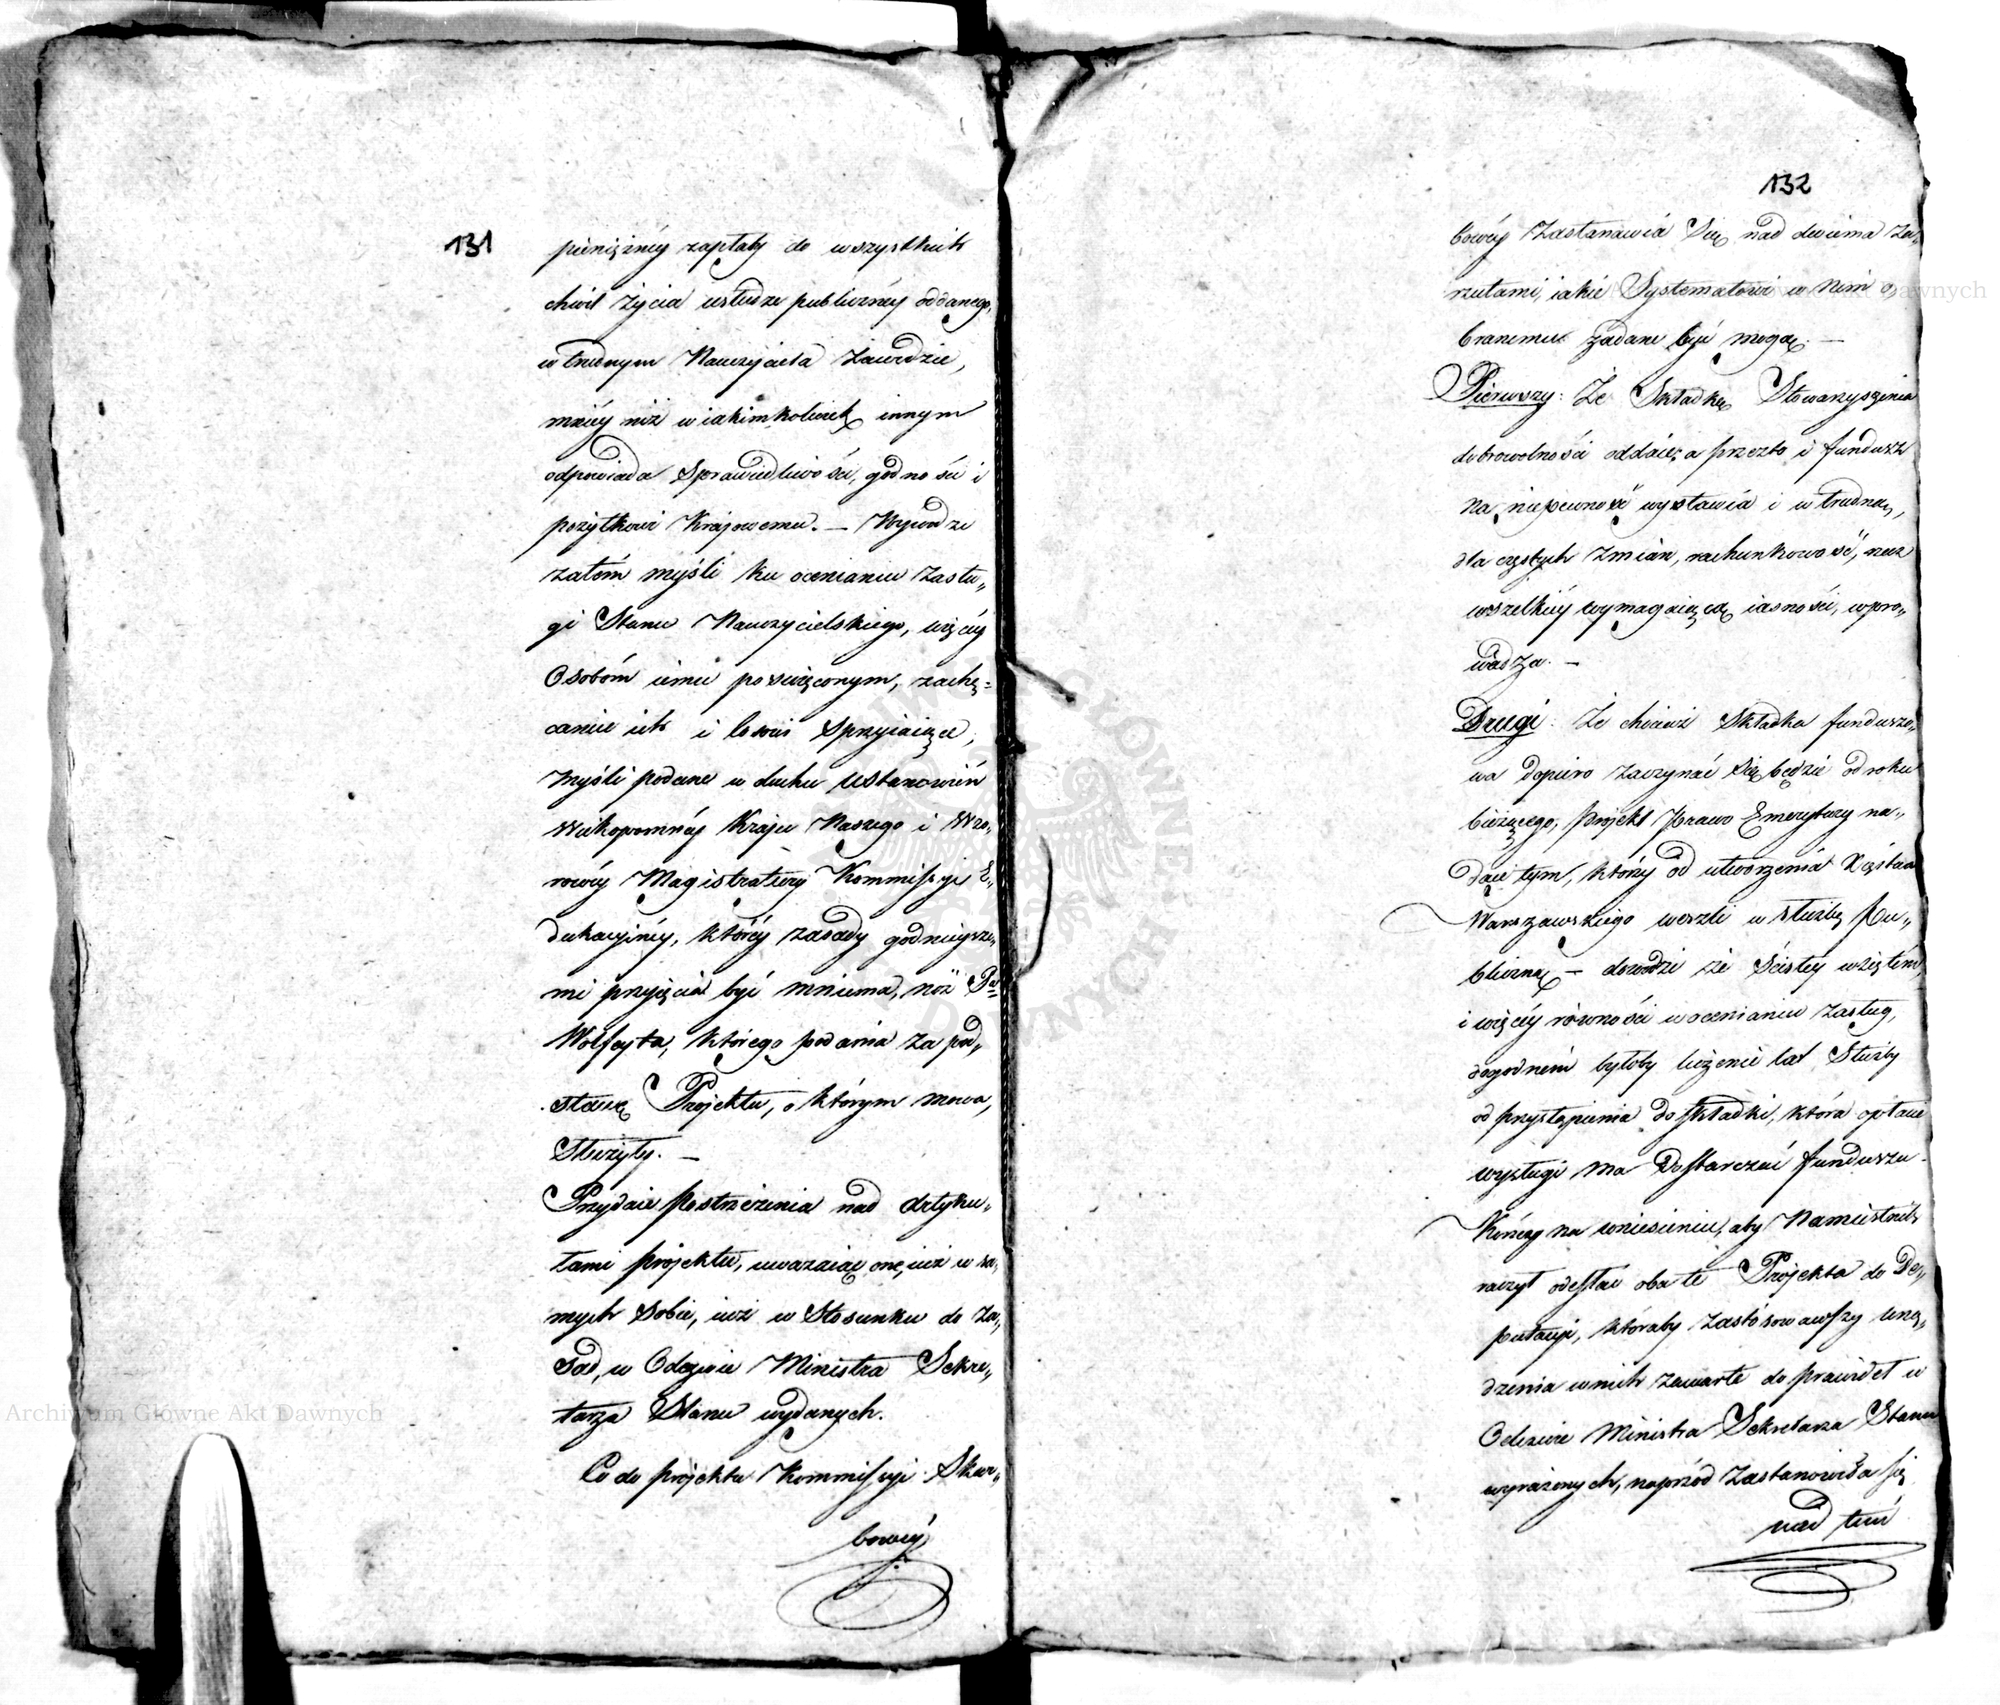 131
pieniężnéy zapłaty do wszystkich
chwil życia usłudze publicznéy oddanego,
w trudnym Nauczyciela Zawodzie,
mniéy niż w iakimkolwiek innym
odpowiada Sprawiedliwości, godności i
pożytkowi Krajowemu. — Wywodzi
zatém myśli ku ocenianiu Zasłu„
gi Stanu Nauczycielskiego, więcéy
Osobóm iemu poświęconym, zachę=
canie ich i losowi Sprzyiaiące,
Myśli podane w duchu Ustanowień
Wiekopomnéy Kraju Naszego i Wzo„
rowéy Magistratury Kommissyi E„
dukacyinéy, któréy zasady godnieysze„
mi przyjęcia być mniema, niż Pa
Wolfeyta, którego podania za pod„
stawę Projektu, o którym mowa,
Służyły. —
Przydaie postrzeżenia nad Artyku„
łami projektu, uważaiąc one, iuż w sa„
mych Sobie, iuż w Stosunku do Za„
sad, w Odezwie Ministra Sekre„
tarza Stanu wydanych.
Co do projektu Kommissyi Skar„
bowéy
132
bowéy Zastanawia Się nad dwiema Za„
rzutami, iakie Systematowi w Nim o„
branemu zadane być mogą. —
Pierwszy: Że Składkę Stowarzyszenia
dobrowolności oddaiąc, a przezto i fundusz
na niepewność wystawia i w trudną,
dla częstych Zmian, rachunkowość, rzecz
wszelkiéy wymagaiącą iasności, wpro„
wadza. —
Drugi: Że chociaż Składka funduszo„
wa dopiero zaczynać Się będzie od roku
bieżącego, projekt Prawo Emerytury na„
daie tym, którzy od utworzenia Xięstwa
Warszawskiego weszli w służbę Pu„
bliczną — dowodzi że Ściśléy wziętéy
i więcéy równości w ocenianiu Zasług,
dogodném byłoby liczenie lat Służby
od przystąpienia do składki, która opłacie
wysługi ma Dostarczać funduszu.
Kończy na wniesieniu, aby Namiestnik
raczył odesłać oba te Projekta do De„
putacyi, któraby zastosowawszy urzą„
dzenia w nich zawarte do prawideł w
Odezwie Ministra Sekretarza Stanu
wyrażonych, naprzód Zastanowiła się
nad tém
Archiwum Główne Akt Dawnych